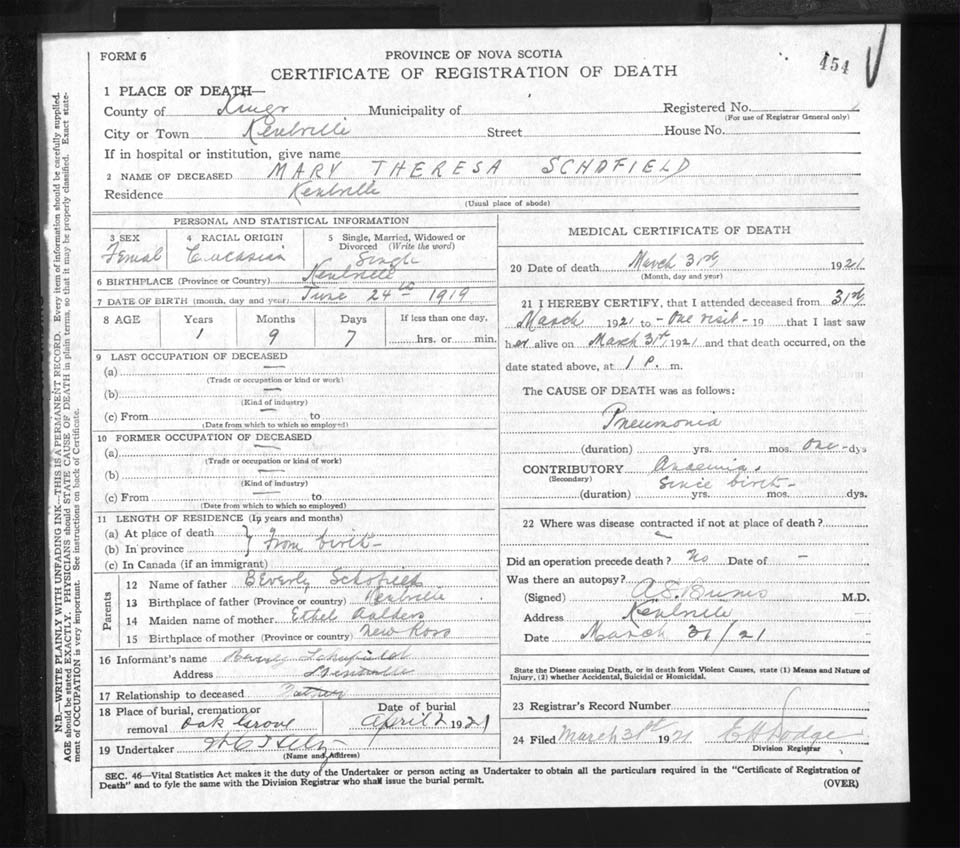 FORM 6
PROVINCE OF NOVA SCOTIA
454
CERTIFICATE OF REGISTRATION OF DEATH
1 PLACE OF DEATH—
County of Kings Municipality of Registered No.
(For use of Registrar General only)
City or Town Kentville Street House No.
If in hospital or institution, give name
2 NAME OF DECEASED MARY THERESA SCHOFIELD
Residence Kentville
(Usual place of abode)
PERSONAL AND STATISTICAL INFORMATION
3 SEX Femal
4 RACIAL ORIGIN Caucasian
5 Single, Married, Widowed or Divorced (Write the word) Single
6 BIRTHPLACE (Province or Country) Kentville
7 DATE OF BIRTH (month, day and year) June 24th 1919
8 AGE Years Months Days If less than one day,
1 9 7 hrs. or min.
9 LAST OCCUPATION OF DECEASED
(a) —
(Trade or occupation or kind or work)
(b) —
(Kind of industry)
(c) From — to
(Date from which to which so employed)
10 FORMER OCCUPATION OF DECEASED
(a) —
(Trade or occupation or kind of work)
(b) —
(Kind of industry)
(c) From — to
(Date from which to which so employed)
11 LENGTH OF RESIDENCE (In years and months)
(a) At place of death
(b) In province } From birth
(c) In Canada (if an immigrant)
Parents
12 Name of father Beverly Schofield
13 Birthplace of father (Province or country) Kentville
14 Maiden name of mother Ethel Aalders
15 Birthplace of mother (Province or country) New Ross
16 Informant's name Beverly Schofield
Address Kentville
17 Relationship to deceased Father
18 Place of burial, cremation or removal Oak Grove
Date of burial April 2 1921
19 Undertaker
(Name and Address)
MEDICAL CERTIFICATE OF DEATH
20 Date of death March 31st 1921
(Month, day and year)
21 I HEREBY CERTIFY, that I attended deceased from 31st
March 1921 to - One visit - 19 that I last saw
her alive on March 31st 1921 and that death occurred, on the
date stated above, at 1 P. m.
The CAUSE OF DEATH was as follows:
Pneumonia
(duration) yrs. mos. One - dys
CONTRIBUTORY Anaemia.
(Secondary) Since birth -
(duration) yrs. mos. dys.
22 Where was disease contracted if not at place of death?
Did an operation precede death? No Date of —
Was there an autopsy?
(Signed) A S Burns M.D.
Address Kentville
Date March 31/21
State the Disease causing Death, or in death from Violent Causes, state (1) Means and Nature of
Injury, (2) whether Accidental, Suicidal or Homicidal.
23 Registrar's Record Number
24 Filed March 31st 1921 E H Dodge
Division Registrar
SEC. 46—Vital Statistics Act makes it the duty of the Undertaker or person acting as Undertaker to obtain all the particulars required in the "Certificate of Registration of
Death" and to fyle the same with the Division Registrar who shall issue the burial permit.
(OVER)
N.B.—WRITE PLAINLY WITH UNFADING INK—THIS IS A PERMANENT RECORD. Every item of information should be carefully supplied.
AGE should be stated EXACTLY. PHYSICIANS should STATE CAUSE OF DEATH in plain terms, so that it may be properly classified. Exact state-
ment of OCCUPATION is very important. See instructions on back of Certificate.